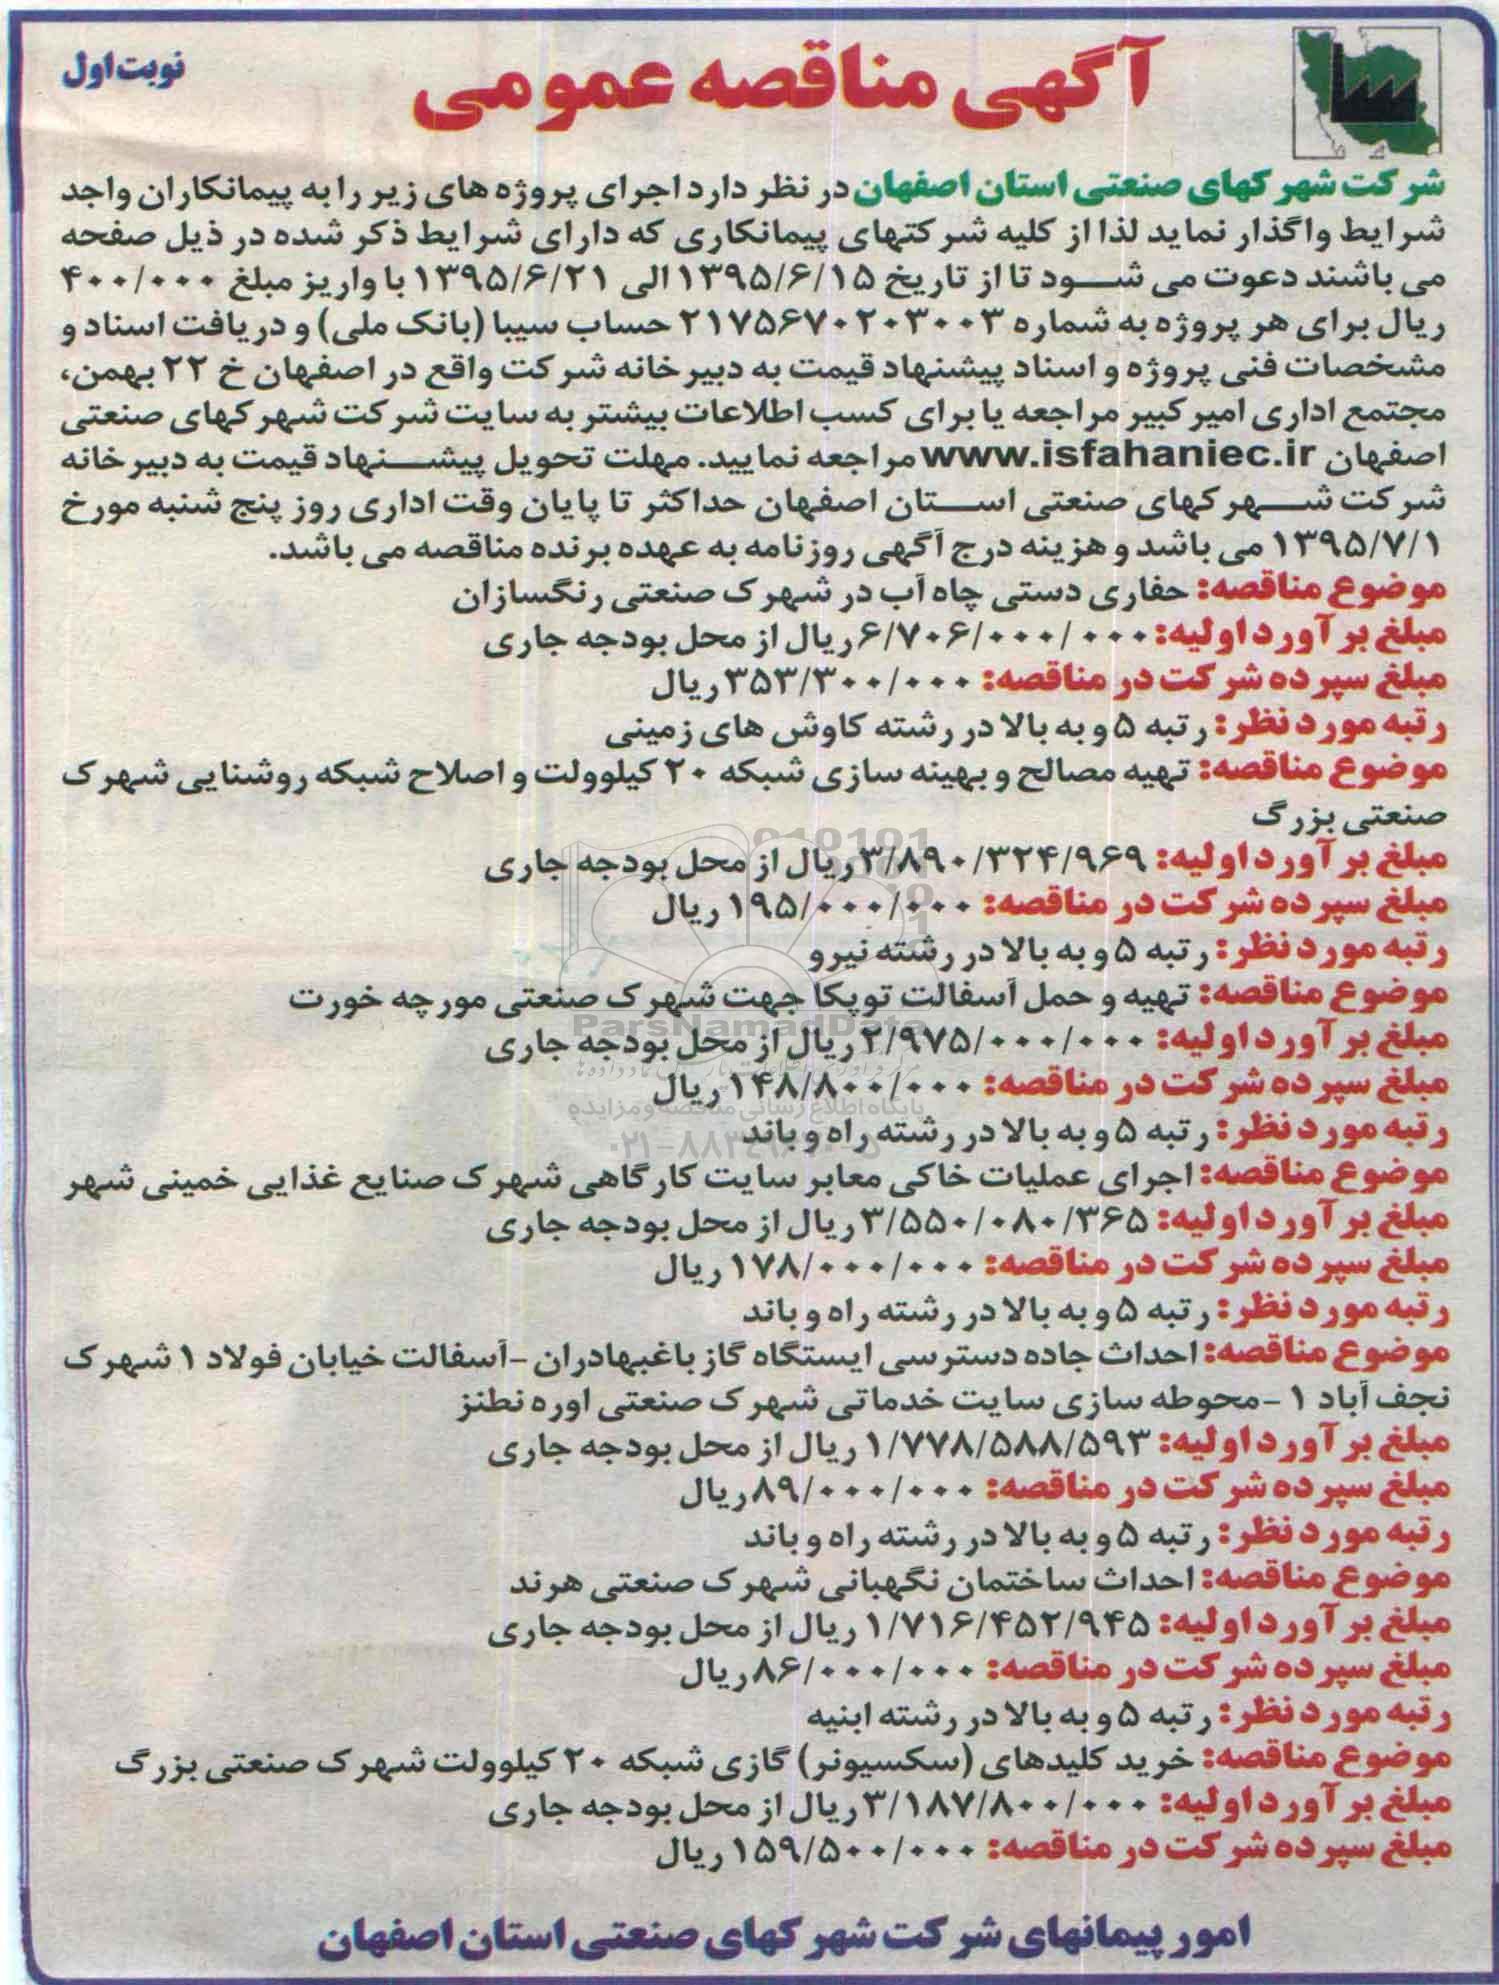 آگهی مناقصه عمومی
نوبت اول
شرکت شهرکهای صنعتی استان اصفهان در نظر دارد اجرای پروژه های زیر را به پیمانکاران واجد
شرایط واگذار نماید لذا از کلیه شرکتهای پیمانکاری که دارای شرایط ذکر شده در ذیل صفحه
می باشند دعوت می شود تا از تاریخ ۱۳۹۵/۶/۱۵ الی ۱۳۹۵/۶/۲۱ با واریز مبلغ ۴۰۰/۰۰۰
ریال برای هر پروژه به شماره ۲۱۷۵۶۷۰۲۰۳۰۰۳ حساب سیبا (بانک ملی) و دریافت اسناد و
مشخصات فنی پروژه و اسناد پیشنهاد قیمت به دبیرخانه شرکت واقع در اصفهان خ ۲۲ بهمن،
مجتمع اداری امیرکبیر مراجعه یا برای کسب اطلاعات بیشتر به سایت شرکت شهرکهای صنعتی
اصفهان www.isfahaniec.ir مراجعه نمایید. مهلت تحویل پیشنهاد قیمت به دبیرخانه
شرکت شهرکهای صنعتی استان اصفهان حداکثر تا پایان وقت اداری روز پنج شنبه مورخ
۱۳۹۵/۷/۱ می باشد و هزینه درج آگهی روزنامه به عهده برنده مناقصه می باشد.
موضوع مناقصه: حفاری دستی چاه آب در شهرک صنعتی رنگسازان
مبلغ برآورد اولیه: ۶/۷۰۶/۰۰۰/۰۰۰ ریال از محل بودجه جاری
مبلغ سپرده شرکت در مناقصه: ۳۵۳/۳۰۰/۰۰۰ ریال
رتبه مورد نظر: رتبه ۵ و به بالا در رشته کاوش های زمینی
موضوع مناقصه: تهیه مصالح و بهینه سازی شبکه ۲۰ کیلوولت و اصلاح شبکه روشنایی شهرک
صنعتی بزرگ
مبلغ برآورد اولیه: ۳/۸۹۰/۳۲۴/۹۶۹ ریال از محل بودجه جاری
مبلغ سپرده شرکت در مناقصه: ۱۹۵/۰۰۰/۰۰۰ ریال
رتبه مورد نظر: رتبه ۵ و به بالا در رشته نیرو
موضوع مناقصه: تهیه و حمل آسفالت توپکا جهت شهرک صنعتی مورچه خورت
ParsNamadData
مبلغ برآورد اولیه: ۲/۹۷۵/۰۰۰/۰۰۰ ریال از محل بودجه جاری
مبلغ سپرده شرکت در مناقصه: ۱۴۸/۸۰۰/۰۰۰ ریال
پایگاه اطلاع رسانی مناقصه و مزایده
رتبه مورد نظر: رتبه ۵ و به بالا در رشته راه و باند
موضوع مناقصه: اجرای عملیات خاکی معابر سایت کارگاهی شهرک صنایع غذایی خمینی شهر
مبلغ برآورد اولیه: ۳/۵۵۰/۰۸۰/۳۶۵ ریال از محل بودجه جاری
مبلغ سپرده شرکت در مناقصه: ۱۷۸/۰۰۰/۰۰۰ ریال
رتبه مورد نظر: رتبه ۵ و به بالا در رشته راه و باند
موضوع مناقصه: احداث جاده دسترسی ایستگاه گاز باغبهادران -آسفالت خیابان فولاد ۱ شهرک
نجف آباد ۱ -محوطه سازی سایت خدماتی شهرک صنعتی اوره نطنز
مبلغ برآورد اولیه: ۱/۷۷۸/۵۸۸/۵۹۳ ریال از محل بودجه جاری
مبلغ سپرده شرکت در مناقصه: ۸۹/۰۰۰/۰۰۰ ریال
رتبه مورد نظر: رتبه ۵ و به بالا در رشته راه و باند
موضوع مناقصه: احداث ساختمان نگهبانی شهرک صنعتی هرند
مبلغ برآورد اولیه: ۱/۷۱۶/۴۵۲/۹۴۵ ریال از محل بودجه جاری
مبلغ سپرده شرکت در مناقصه: ۸۶/۰۰۰/۰۰۰ ریال
رتبه مورد نظر: رتبه ۵ و به بالا در رشته ابنیه
موضوع مناقصه: خرید کلیدهای (سکسیونر) گازی شبکه ۲۰ کیلوولت شهرک صنعتی بزرگ
مبلغ برآورد اولیه: ۳/۱۸۷/۸۰۰/۰۰۰ ریال از محل بودجه جاری
مبلغ سپرده شرکت در مناقصه: ۱۵۹/۵۰۰/۰۰۰ ریال
امور پیمانهای شرکت شهرکهای صنعتی استان اصفهان